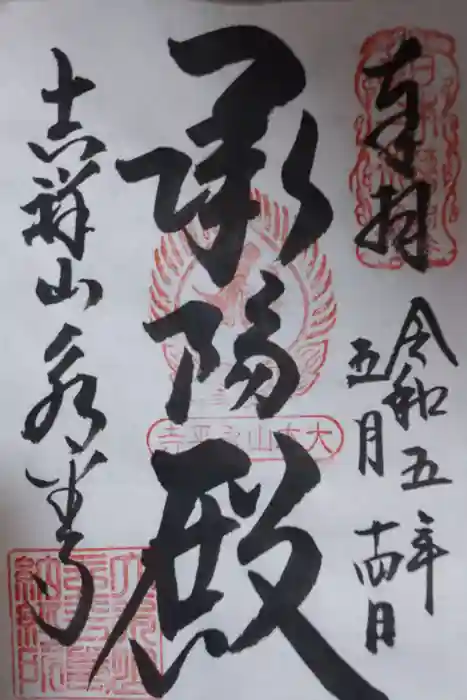 奉拝
令和五年
五月十四日
承陽殿
大本山永平寺
吉祥山永平寺